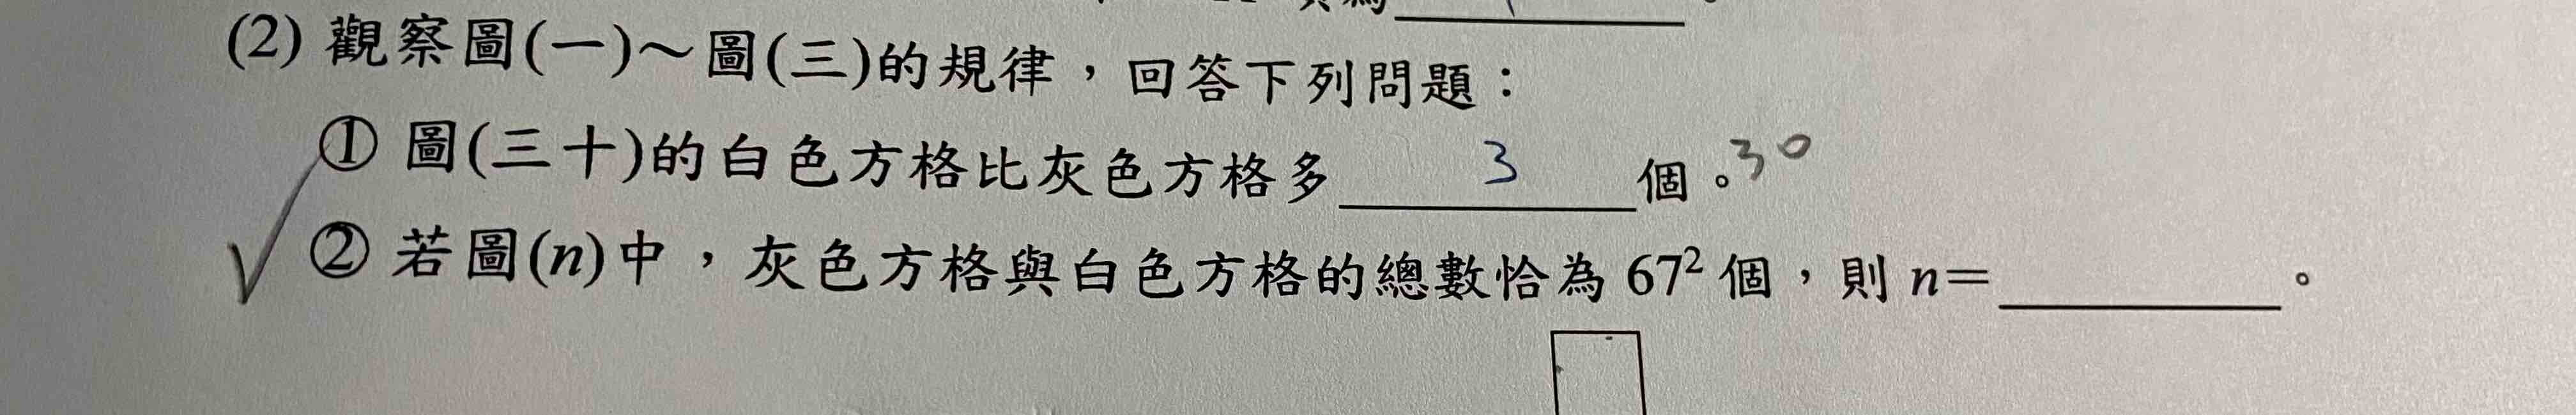 (2) 觀察圖(一)～圖(三)的規律，回答下列問題：
① 圖(三十)的白色方格比灰色方格多 3 個。30
② 若圖(n)中，灰色方格與白色方格的總數恰為 67² 個，則 n=______。